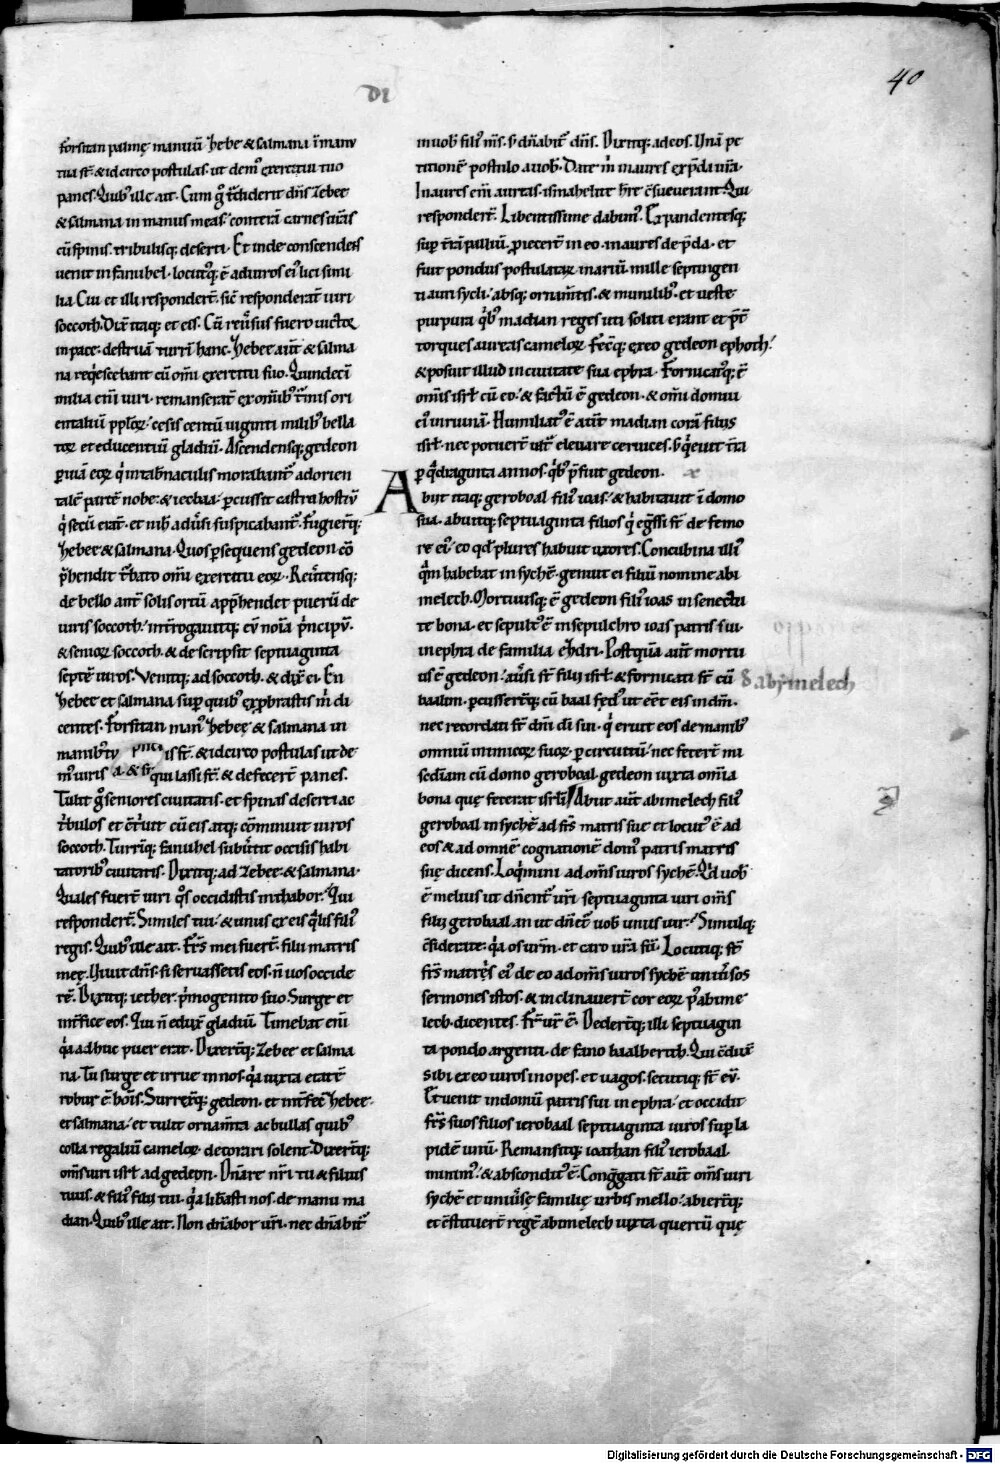 DI
40
forsitan palmę manuū hebe & salmana ī manu
tua st̄. & idcirco postulas. ut dem᷒ exercitui tuo
panes. Quib᷒ ille ait. Cum g° t̄diderit dn̄s Zebee
& salmana in manus meas. conterā carnes ur̄as
cū spinis. tribulisq; deserti. Et inde conscendens
uenit in fanuhel. locut᷒q; ē ad uiros ei᷒ loci simi
lia Cui et illi responder̄t. sic̄ responderāt uiri
soccoth. Dix̄ itaq; et eis. Cū reu̅sus fuero uictor
in pace. destruā turrī hanc. hebee aut̄ & salma
na reqescebant cū om̄i exercitu suo. Quindeci
milia enī uiri. remanserāt ex om̄ib᷒ t̄mis ori
entaliū pplor. cesis centū uiginti milib᷒ bella
torꝝ et educentiū gladiū. Ascendensq; gedeon
ꝑ uiā eorꝝ qi in tab̄naculis morabant᷒ ad orien
talē partē nobe. & iecbaa. ꝑcussit castra hostiū
qi secu erāt. et nih̄ adūsi suspicabant᷒. Fugier̄q;
hebee & salmana. Quos ꝑsequens gedeon cō
p̄hendit t̄bato om̄i exercitu eorꝝ. Reu̅tensq;
de bello ant̄ solis ortū app̄hendet puerū de
uiris soccoth. int̄rogauitq; eū noīa p̄ncipū.
& seniorꝝ soccoth. & descripsit septuaginta
septē uiros. Venitq; ad soccoth. & dix̄ ei. En
hebee et salmana suꝑ quib᷒ exꝓbrastis m̄ di
centes. Forsitan man᷒ hebeę & salmana in
manib᷒ tu is st̄. & idcirco postulas ut de
m᷒ uiris qui lassi st̄. & defecer̄t panes.
Tulit g° seniores ciuitatis. et spinas deserti ac
t̄bulos et c̄t̄uit cū eis atq; cōminuit uiros
soccoth. Turrīq; fanuhel subu̅tit occisis habi
tatorib᷒ ciuitatis. Dixitq; ad Zebee. & salmana.
Quales fuer̄t uiri q°s occidistis in thabor. Qui
responder̄t. Similes tui. & unus ex eis qalis fili᷒
regis. Quib᷒ ille ait. Fr̄s mei fuer̄t. filii matris
meę. Viuit dn̄s. si seruassetis eos. n̄ uos occide
rē. Dixitq; iether p̄mogenito suo. Surge et
int̄fice eos. Qui n̄ edux̄ gladiū. Timebat enī
qa adhuc puer erat. Dixer̄q; Zebee et salma
na. Tu surge et irrue in nos. qa iuxta etatē
robur ē hoīs. Surrex̄q; gedeon. et int̄fec̄ hebee.
et salmana. et tulit ornam̄ta ac bullas quib᷒
colla regaliū camelorꝝ. decorari solent. Dixer̄q;
om̄s uiri isrl̄ ad gedeon. Dn̄are nr̄i tu & filius
tuus. & fili᷒ filii tui. qa lib̄asti nos. de manu ma
dian. Quib᷒ ille ait. Non dn̄abor ur̄i. nec dn̄abit᷒
in uob̄ fili᷒ m̄s. s; dn̄abit᷒ dn̄s. Dixitq; ad eos. Vnā pe
titionē postulo a uob̄. Date m̄ inaures ex p̄da ur̄a.
Inaures em̄ aureas. ismahelite hr̄e c̄sueuerant. Qui
responder̄t. Libentissime dabim᷒. Expandentesq;
suꝑ t̄rā palliū. ꝓiecer̄t in eo. inaures de p̄da. et
fuit pondus postulatarꝝ inariū. mille septingen
ti auri sycli. absq; ornam̄tis. & munilib᷒. et ueste
purpura qib᷒ madian reges uti soliti erant et p̄t̄
torques aureas camelorꝝ. Fec̄q; ex eo gedeon ephoth.
& posuit illud in ciuitate sua ephra. Fornicat᷒q; ē
om̄is isrl̄ cū eo. & factū ē gedeon. & om̄i domui
ei᷒ in ruinā. Humiliat᷒ ē aut̄ madian corā filiis
isrl̄. nec potuer̄t ult̄ eleuare ceruices. s; qeuit t̄ra
ꝑ qadraginta annos. qib᷒ p̄fuit gedeon.
Abiit itaq; geroboal fili᷒ ioas. & habitauit ī domo
sua. abuitq; septuaginta filios qi eg̅ssi st̄ de femo
re ei᷒. eo qd̄ plures habuit uxores. Concubina illi᷒
qam habebat in sychē. genuit ei filiū nomine abi
melech. Mortuusq; ē gedeon fili᷒ ioas in senectu
te bona. et sepult᷒ ē in sepulchro ioas patris sui.
in ephra de familia ezdri. Postquā aut̄ mortu
us ē gedeon. aūsi st̄ filii isrl̄. & fornicati st̄ cū
baalim. ꝑcusser̄tq; cū baal fęd᷒ ut eēt eis in dm̄.
nec recordati st̄ dn̄i di sui. qi eruit eos de manib᷒
omniū inimicorꝝ suorꝝ ꝑ circuitū. nec fecer̄t mi
sc̄diam cū domo geroboal. gedeon iuxta om̄ia
bona quę fecerat isrl̄i. Abiit aut̄ abimelech fili᷒
geroboal in sychē ad fr̄s matris sue et locut᷒ ē ad
eos & ad omnē cognationē dom᷒ patris matris
suę dicens. Loqimini ad om̄s uiros sychē. Qd̄ uob̄
ē melius ut dn̄ent᷒ ur̄i septuaginta uiri om̄s
filii gerobaal an ut dn̄et᷒ uob̄ unus uir. Simulq;
c̄siderate. qa os ur̄m. et caro ur̄a sū. Locutiq; st̄
fr̄s matrẹ̄s ei᷒ de eo ad om̄s uiros sychē uniūsos
sermones istos. & inclinauer̄t cor eorꝝ p᷒ abime
lech. dicentes. Fr̄ ur̄ ē. Deder̄tq; illi septuagin
ta pondo argenti. de fano baalberith. Qui c̄dux̄
sibi ex eo uiros inopes. et uagos. secutiq; st̄ eū.
Et uenit in domū patris sui in ephra. et occidit
fr̄s suos filios ierobaal septuaginta uiros suꝑ la
pidē unū. Remansitq; ioathan fili᷒ ierobaal
minim᷒. & abscondit᷒ ē. Cong̅gati st̄ aut̄ om̄s uiri
sychē et uniūsę familię urbis mello. abier̄tq;
et c̄stituer̄t regē abimelech iuxta quercū quę
d abẏmelech
Digitalisierung gefördert durch die Deutsche Forschungsgemeinschaft - DFG